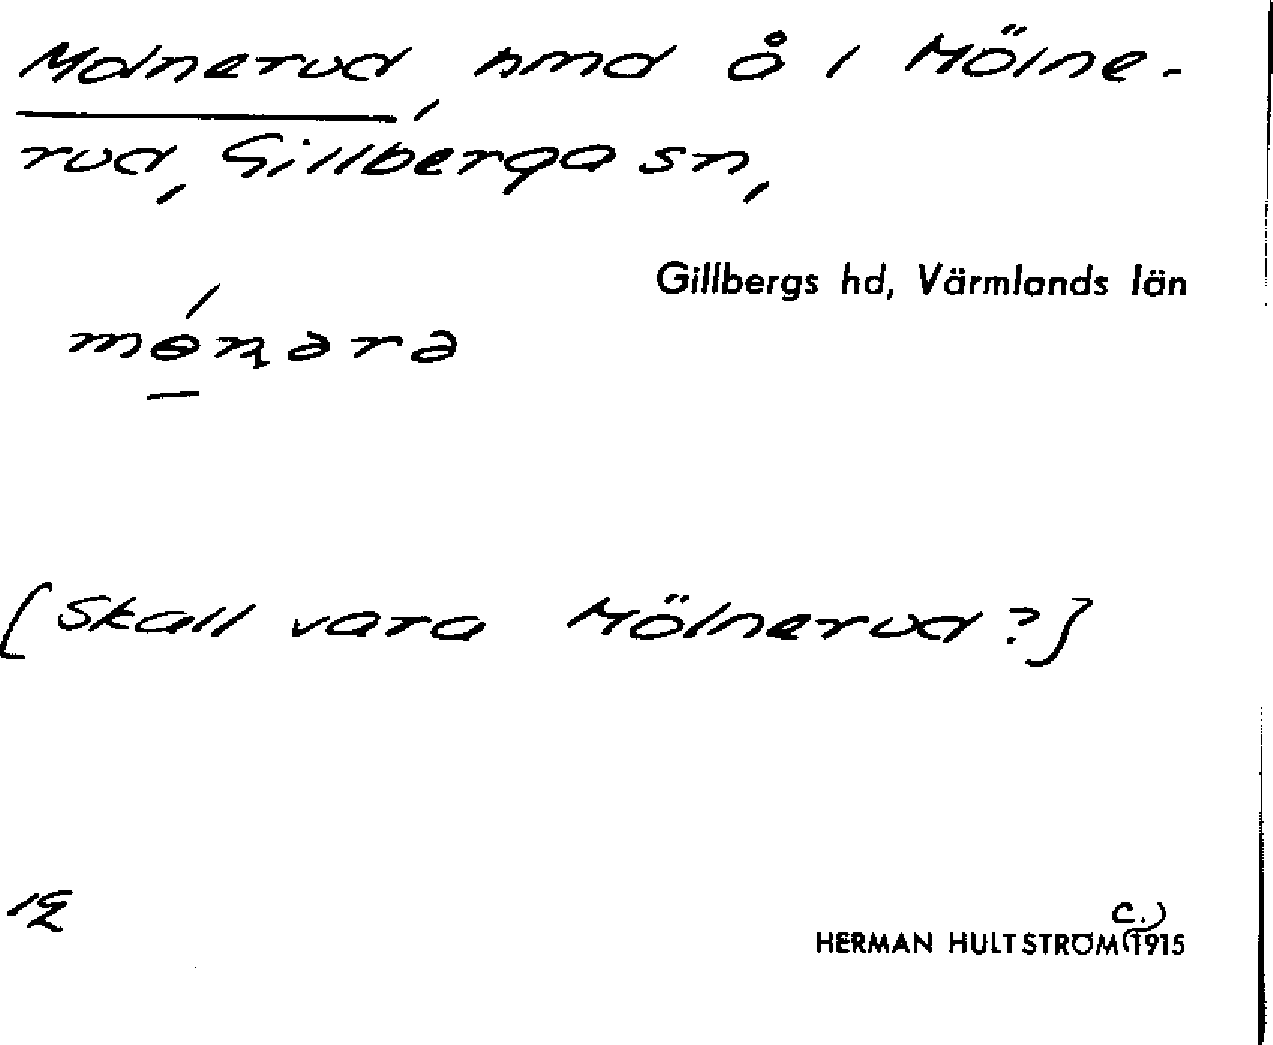 Molnerud, hmd å i Mölne-
rud, Gillberga sn,
Gillbergs hd, Värmlands län
[Skall vara Mölnerud?]
HERMAN HULTSTRÖM (c.) 1915